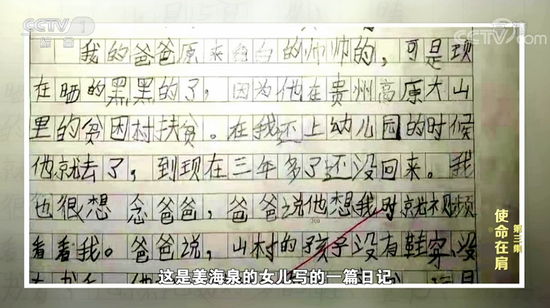 CCTV 1
综合
CCTV.com
我的爸爸原来白白的帅帅的，可是现
在晒的黑黑的了，因为他在贵州高原大山
里的贫困村扶贫。在我还上幼儿园的时候
他就去了，到现在三年多了还没回来。我
也很想念爸爸，爸爸说他想我时就视频
看看我。爸爸说，山村的孩子没有鞋穿，没
这是姜海泉的女儿写的一篇日记
第三集
使命在肩